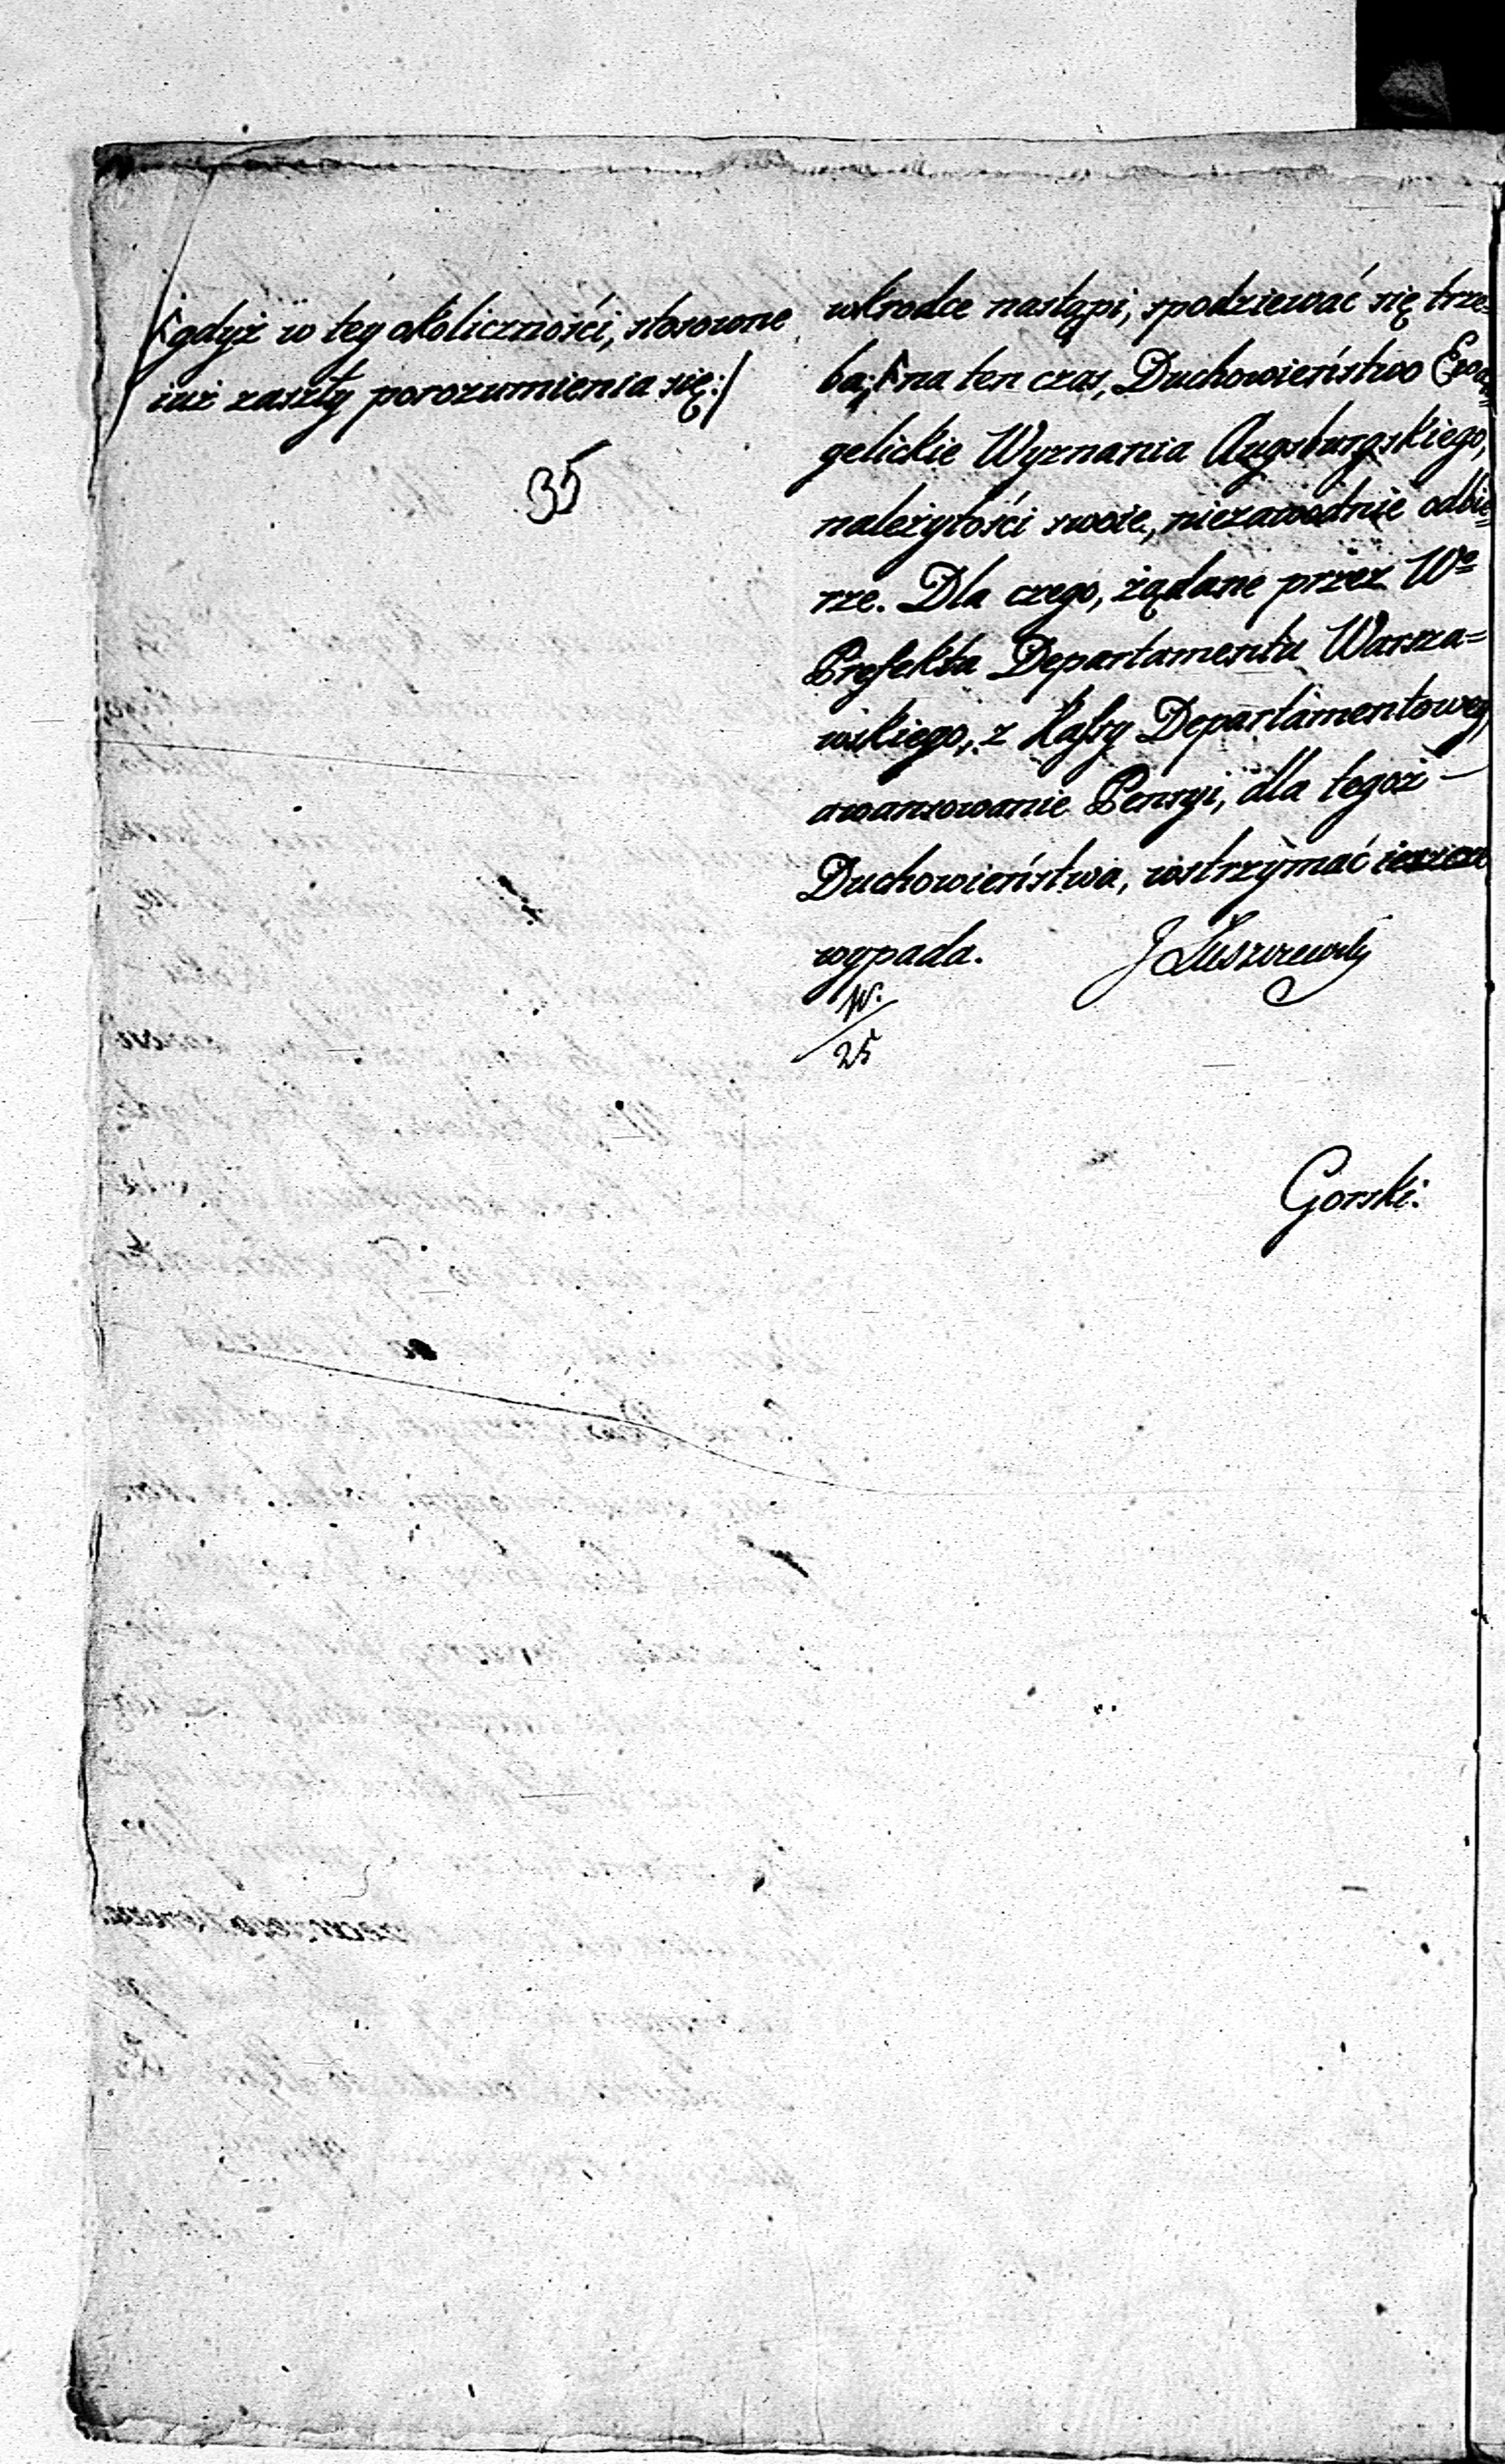 gdyż w tey okoliczności, stosowne
iuż zaszły porozumienia się:/
35
wkrodce nastąpi, spodziewać się trze=
ba; na ten czas, Duchowieństwo Ewan=
gelickie Wyznania Augsburgskiego,
należytości swoie, niezawodnie odbie=
rze. Dla czego, żądane przez Wº
Prefekta Departamentu Warsza=
wskiego, z Kassy Departamentowey,
awansowanie Pensyi, dla tegoż —
Duchowieństwa, wstrzymać ieszcze
wypada. J Łuszczewski
W.
25
Gorski.